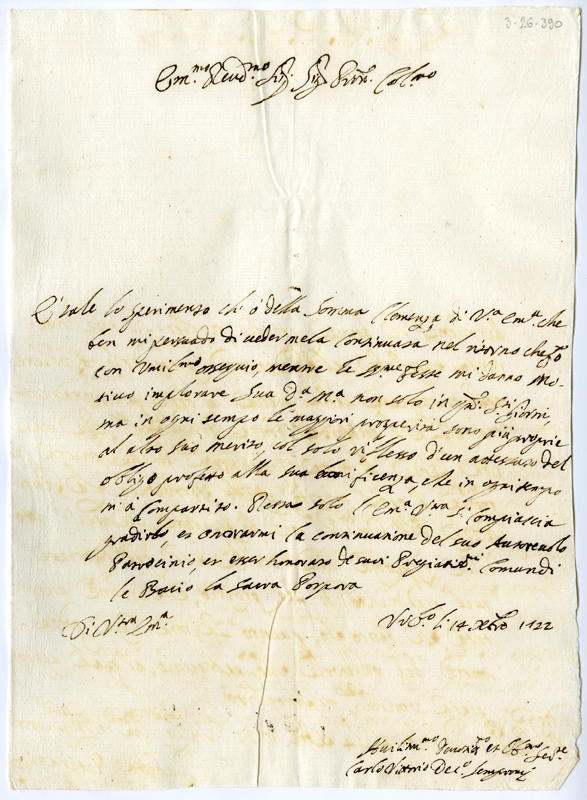 3-26-390
Em.mo Reud.mo Sig. Sig Prn. Col.mo
E' tale lo sperimento ch' ò della somma Clemenza di V.a Em.a che
ben mi persuado di vedermela Continuata nel ritorno che fo
con Umiliss.mo ossequio, mentre le S.me Feste mi danno Mo-
tivo implorare Sua D.a M.a non solo in q.ti S.ti Giorni,
ma in ogni tempo le maggiori prosperità sono più proprie
al alto suo merito, col solo riflesso d'un attestato del
obligo professo alla sua beneficenza, che in ogni tempo
m'à Compartito. Resta solo l'Em.a V.tra si Compiaccia
gradirlo, et onorarmi la continuazione del suo Autorevole
Patrocinio, et esser honorato de suoi Pregiatiss.mi Comandi
le Bacio la Sacra Porpora
Di V.tra Em.a
Urb.o li 14 Xbre 1722
Humiliss.mo Devotiss.mo et Obl.mo Ser.re
Carlo Vittorio De C.i Semproni